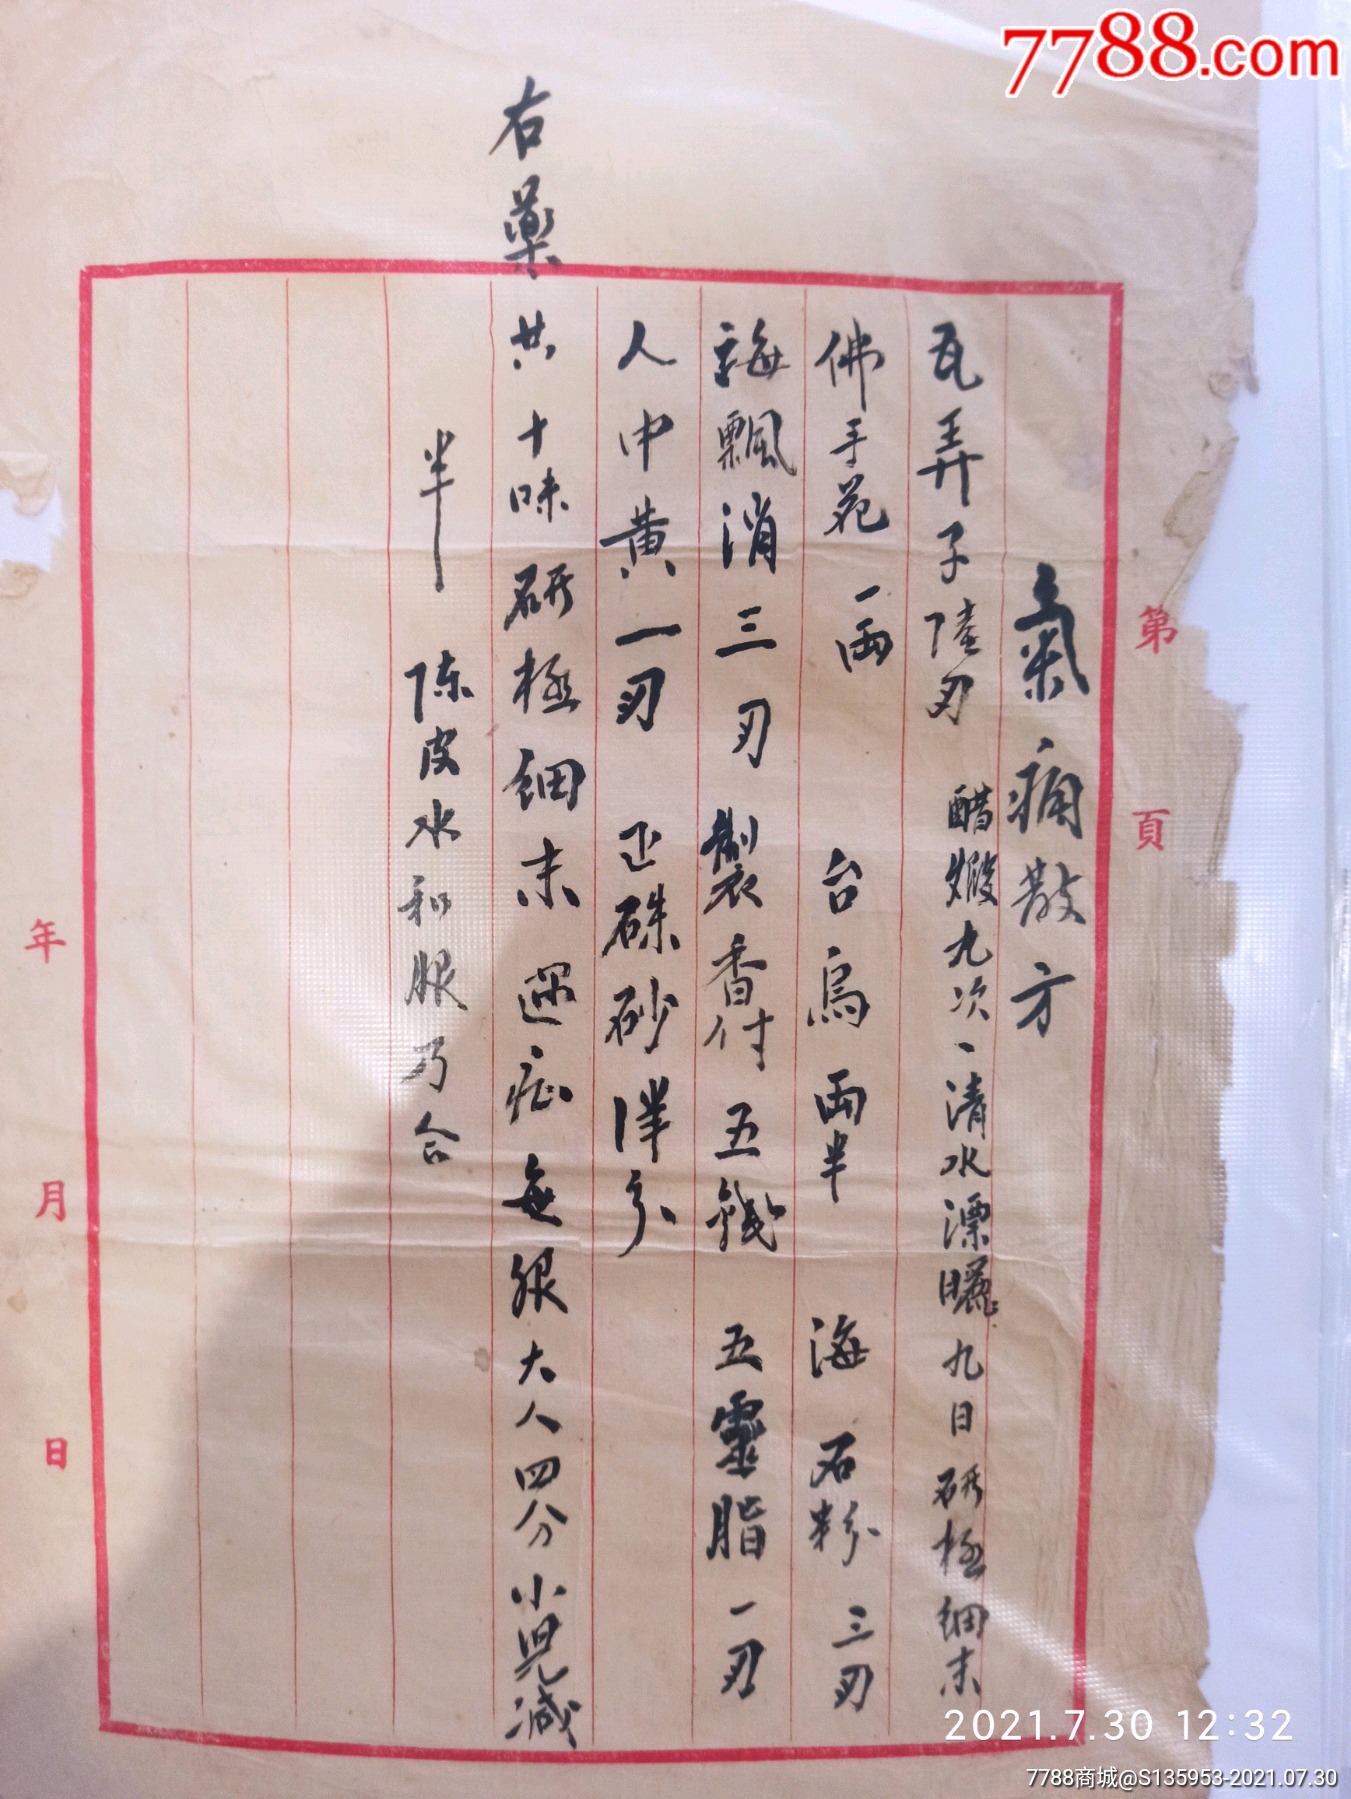 7788.com
氣痛散方
瓦弄子陸刃 醋煅九次 清水漂曬九日研極細末
佛手花一兩 台烏兩半 海石粉三刃
海飄消三刃 製香付五錢 五靈脂一刃
人中黄一刃 正硃砂洋分
右藥共十味研極細末 症每服大人四分小児減
半 陈皮水和服乃合
第 頁
年 月 日
2021.7.30 12:32
7788商城@S135953-2021.07.30